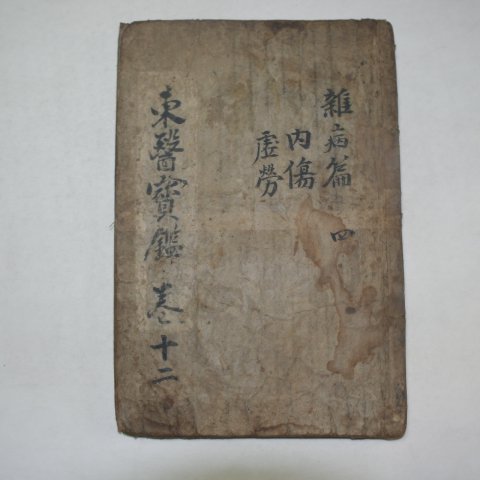 雜病篇 四
內傷
虛勞
東醫寶鑑 卷十二